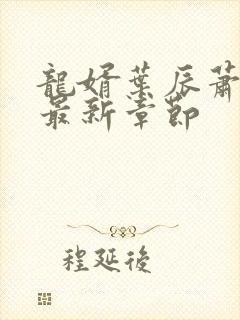 龍婿葉辰蕭
最新章節
程延後